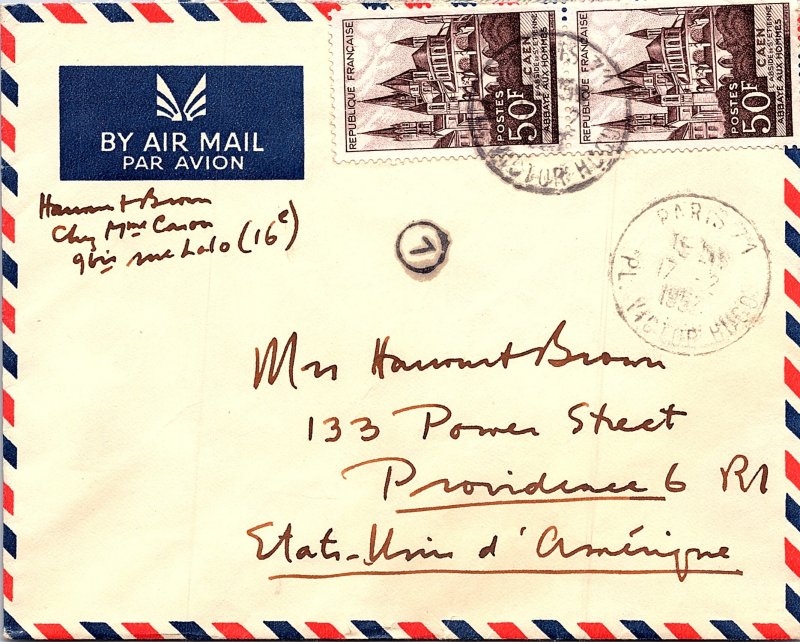 BY AIR MAIL
PAR AVION
REPUBLIQUE FRANÇAISE
POSTES 50F
CAEN
ABSIDE DE ST ETIENNE
ABBAYE AUX HOMMES
REPUBLIQUE FRANÇAISE
POSTES 50F
CAEN
ABSIDE DE ST ETIENNE
ABBAYE AUX HOMMES
VICTOR HUGO
Harcourt Brown
Chez Mme Caron
9bis rue Lalo (16e)
1
PARIS 71
17
1952
PL. VICTOR HUGO
Mrs Harcourt Brown
133 Power Street
Providence 6 RI
Etats-Unis d'Amérique